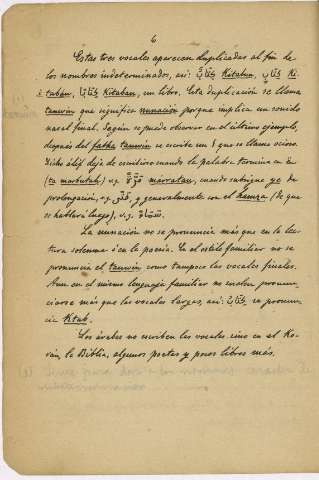 6
Estas tres vocales aparecen duplicadas al fin de
los nombres indeterminados, así: كتابٌ Kitabun, كتابٍ Ki-
tabin, كتابًا Kitaban, un libro. Esta duplicación se llama
tanwin que significa nunación porque implica un sonido
nasal final. Según se puede observar en el último ejemplo,
después del fatha tanwin se escribe un ا que se llama ocioso.
Dicho álif deja de escribirse cuando la palabra termina en ة
(ta marbutah) v.g. مرةً marratan, cuando subsigue ya de
prolongación, v.g. هدًى y generalmente con el hamza (de que
se hablará luego), v.g.
La nunación no se pronuncia más que en la lec-
tura solemne i en la poesía. En el estilo familiar no se
pronuncia el tanwin como tampoco las vocales finales.
Aun en el mismo lenguaje familiar no suelen pronun-
ciarse más que las vocales largas, así: كتاب, se pronun-
cia Ktab.
Los árabes no escriben las vocales sino en el Ko-
rán, la Biblia, algunos poetas y pocos libros más.